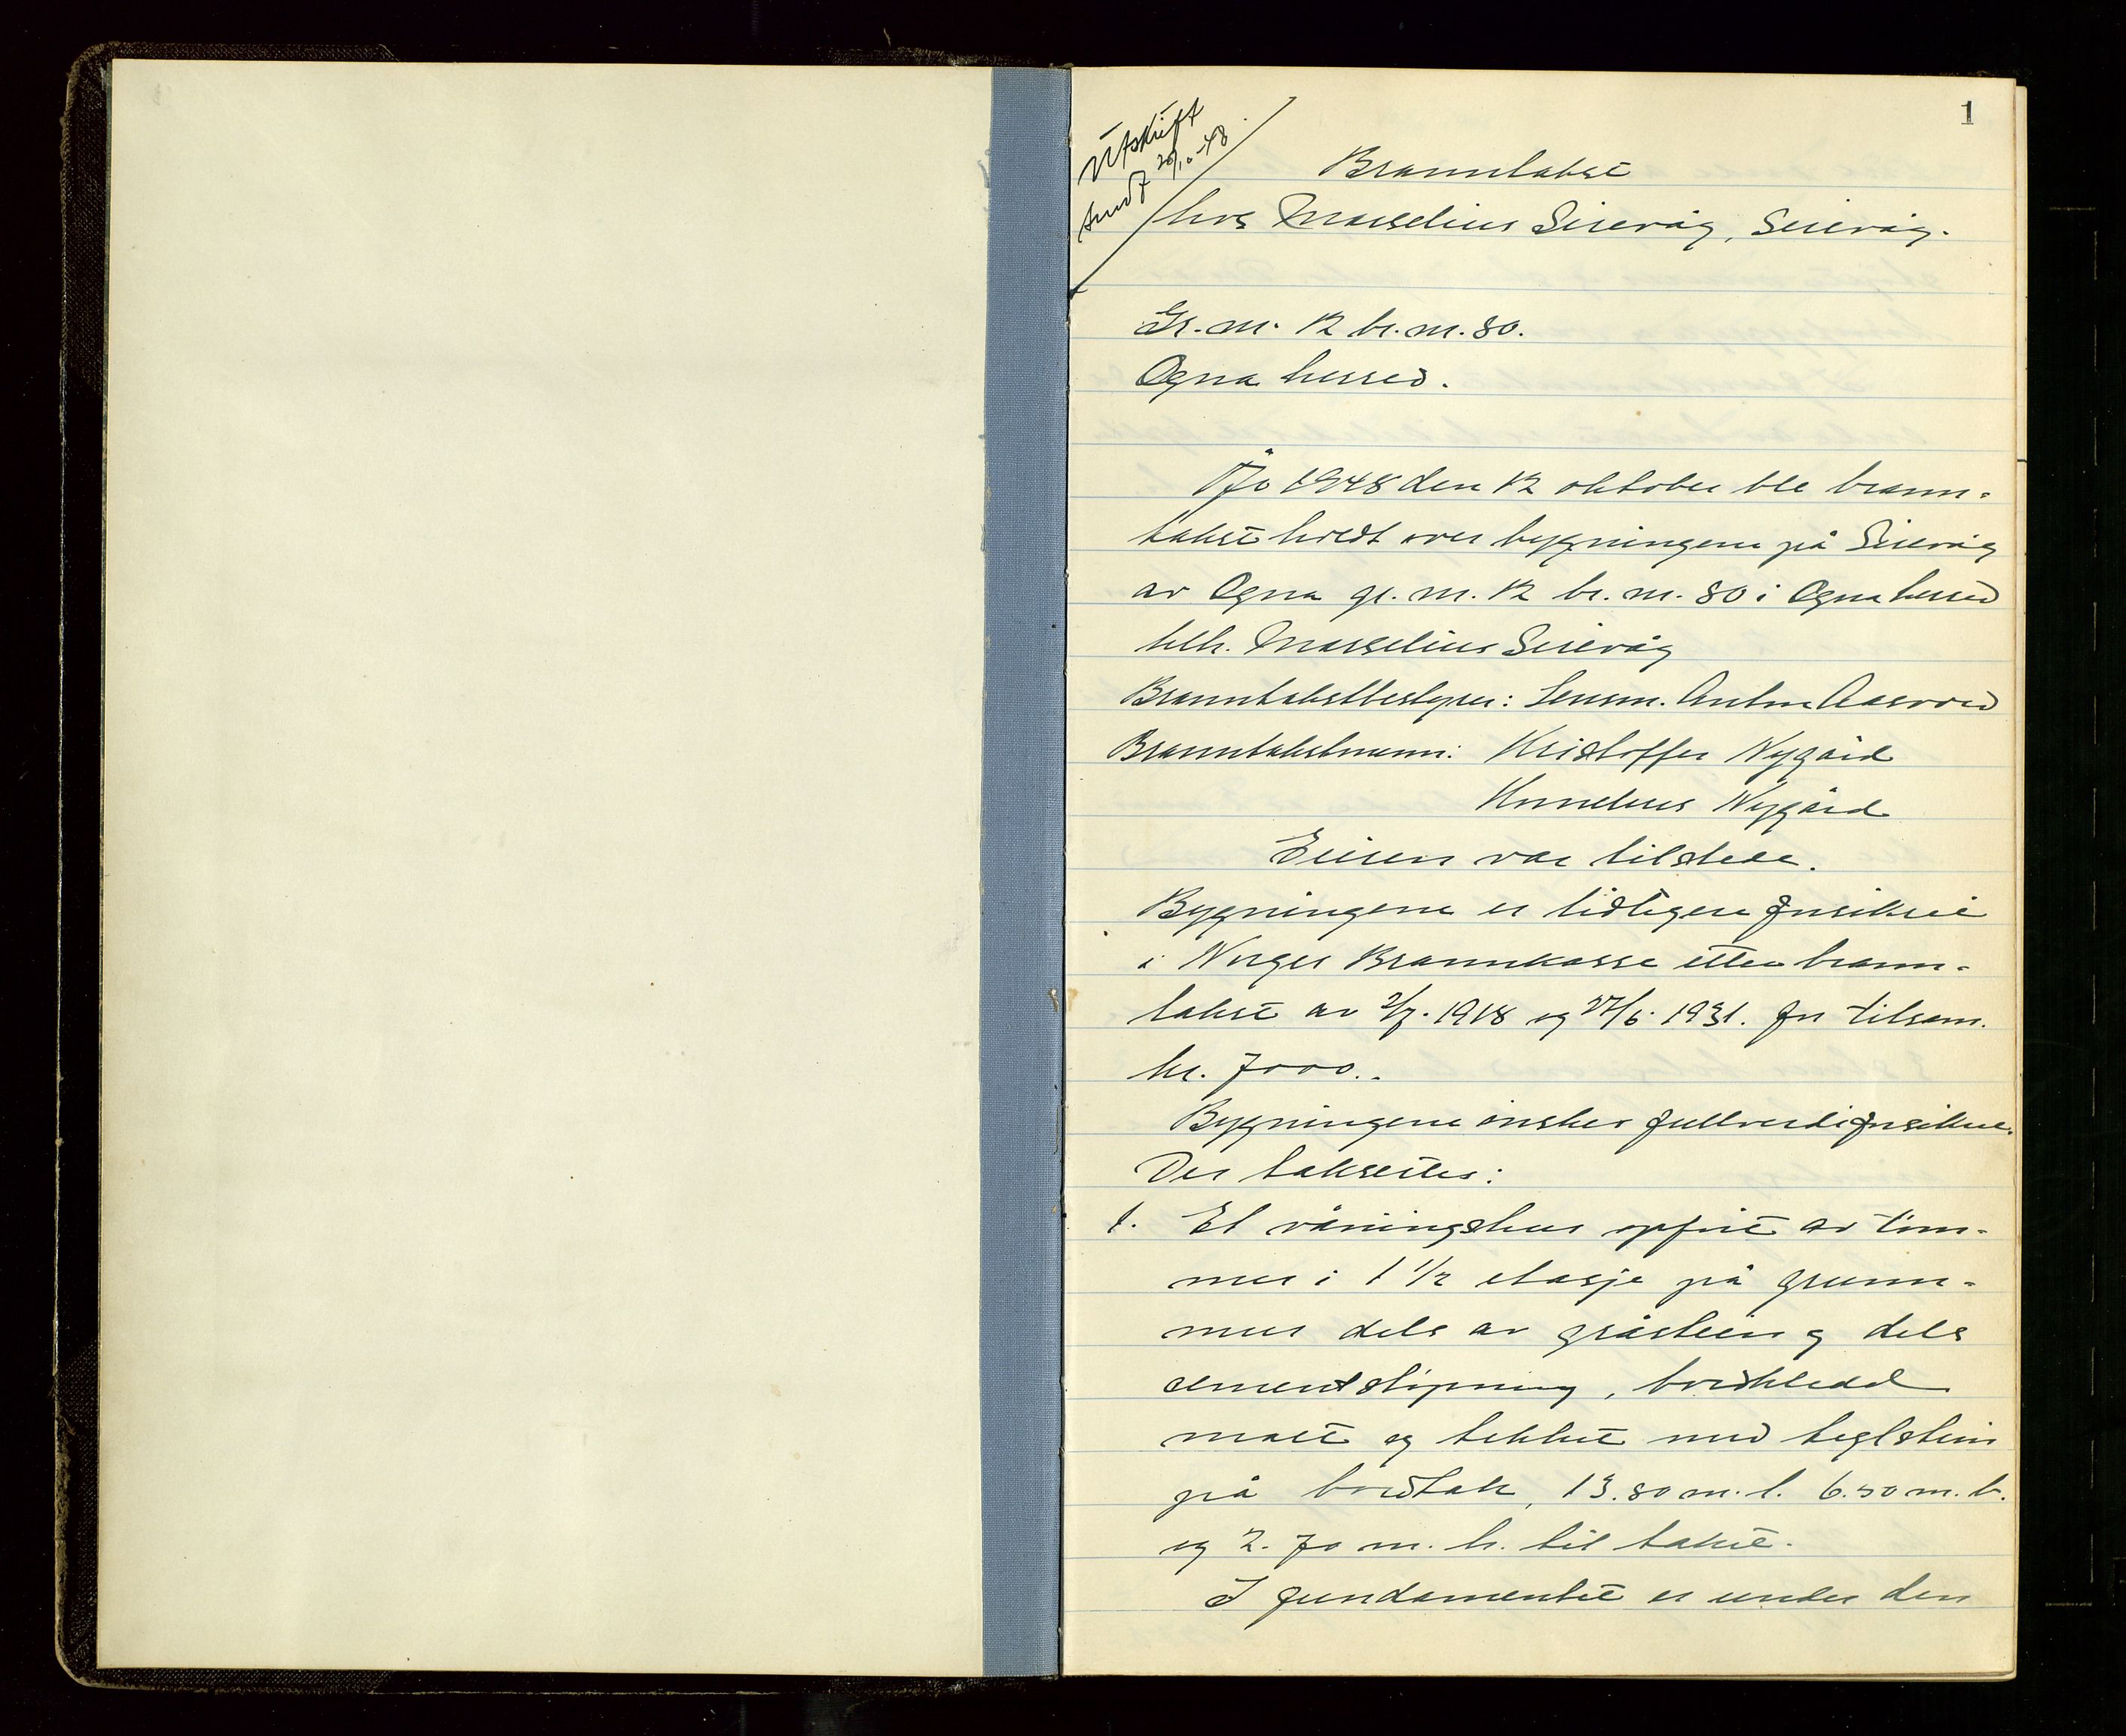 1
Utskrift
sendt 20/10-48
Branntakst
hos Marselius Sirevåg, Sirevåg.
Gr. nr. 12 br. nr. 80.
Ogna herred.
År 1948 den 12 oktober ble brann-
takst holdt over bygningene på Sirevåg
av Ogna gr. nr. 12 br. nr. 80 i Ogna herred
tilh. Marselius Sirevåg
Branntakstbestyrer: Lensm. Anton Aasvold
Branntakstmenn: Kristoffer Nygård
Kornelius Nygård
Eieren var tilstede.
Bygningene er tidligere forsikret
i Norges Brannkasse etter brann-
takst av 2/7. 1918 og 27/6. 1931. for tilsam.
kr. 7000.-
Bygningene ønskes fullverdiforsikret.
Der takseres:
1. Et våningshus oppført av tøm-
mer i 1 1/2 etasje på grunn-
mur dels av gråstein og dels
cementstøpning, bordkledd
malt og tekket med teglstein
på bordtak, 13.80 m. l. 6.50 m. b.
og 2.70 m. h. til taket.
I fundamentet er under den